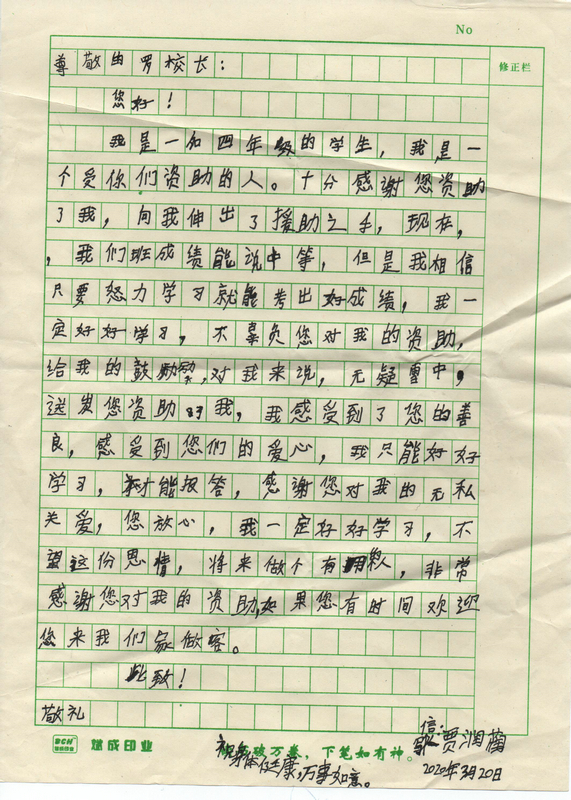 No
修正栏
尊敬由罗校长：
您好！
我是一名四年级的学生，我是一
个受你们资助的人。十分感谢您资助
了我，向我伸出了援助之手，现在，
，我们班成绩能说中等，但是我相信
只要努力学习就能考出好成绩，我一
定好好学习，不辜负您对我的资助，
给我的鼓励，对我来说，无疑雪中，
送炭您资助的我，我感受到了您的善
良，感受到您们的爱心，我只能好好
学习，才能报答，感谢您对我的无私
关爱，您放心，我一定好好学习，不
望这份恩情，将来做个有用的人，非常
感谢您对我的资助，如果您有时间欢迎
您来我们家做客。
此致！
敬礼
BCH 斌成印业 破万卷，下笔如有神。
祝身体健康，万事如意。
信：贾润楠
2020年3月20日